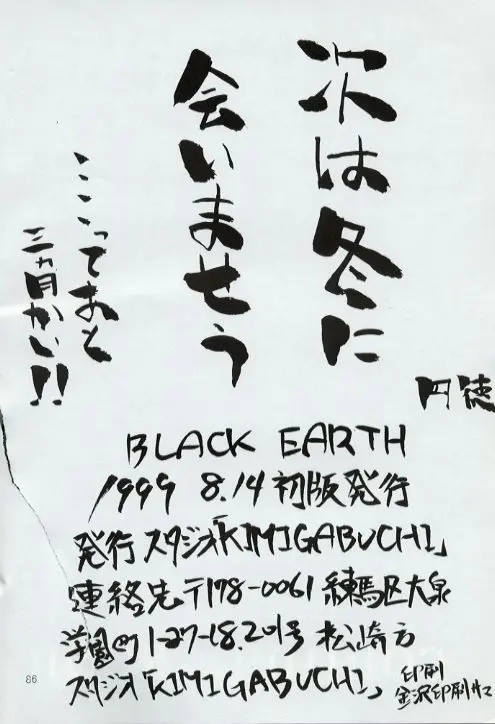 次は冬に
会いませう
ここってあと
三ヵ月かい!!
円徳
BLACK EARTH
1999 8.14 初版発行
発行 スタジオ「KIMIGABUCHI」
連絡先 〒178-0061 練馬区大泉
学園町1-27-18.201号 松崎方
スタジオ「KIMIGABUCHI」
印刷
金沢印刷
86